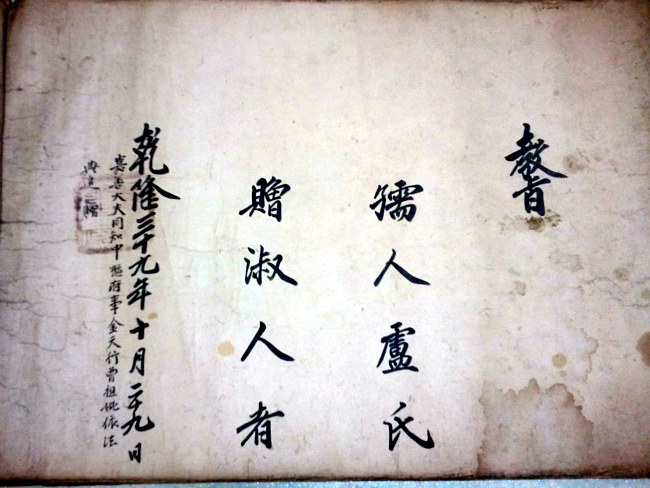 教旨
孺人盧氏
贈淑人者
乾隆三十九年十月二十九日
嘉善大夫同知中樞府事金天行曾祖妣依法
典追贈